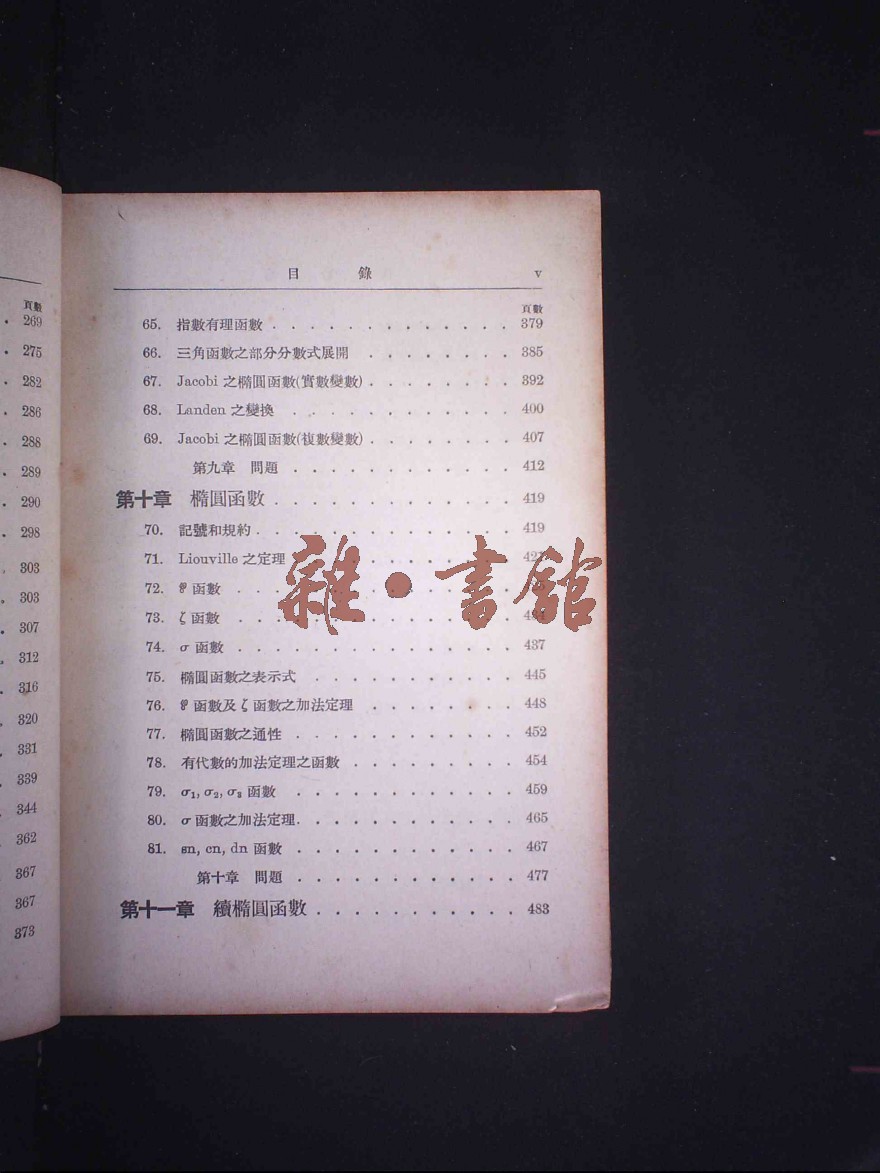 頁數
269
275
282
286
288
289
290
298
303
303
307
312
316
320
331
339
344
362
367
367
373
目 錄 v
頁數
65. 指數有理函數 . . . . . . . . . . . . . 379
66. 三角函數之部分分數式展開 . . . . . . . . 385
67. Jacobi 之橢圓函數(實數變數) . . . . . . . . 392
68. Landen 之變換 . . . . . . . . . . . . 400
69. Jacobi 之橢圓函數(複數變數) . . . . . . . . 407
第九章 問題 . . . . . . . . . . . . 412
第十章 橢圓函數 . . . . . . . . . . . . . 419
70. 記號和規約 . . . . . . . . . . . . . . 419
71. Liouville 之定理 . . . . . . . . . . .
72. ℘ 函數 . . . . . . . . . . . . . . .
73. ζ 函數 . . . . . . . . . . . . . . .
74. σ 函數 . . . . . . . . . . . . . . . 437
75. 橢圓函數之表示式 . . . . . . . . . . . 445
76. ℘ 函數及 ζ 函數之加法定理 . . . . . . . . 448
77. 橢圓函數之通性 . . . . . . . . . . . . 452
78. 有代數的加法定理之函數 . . . . . . . . . 454
79. σ₁, σ₂, σ₃ 函數 . . . . . . . . . . . . 459
80. σ 函數之加法定理 . . . . . . . . . . . . 465
81. sn, cn, dn 函數 . . . . . . . . . . . . 467
第十章 問題 . . . . . . . . . . . . 477
第十一章 續橢圓函數 . . . . . . . . . . . 483
雜·書館